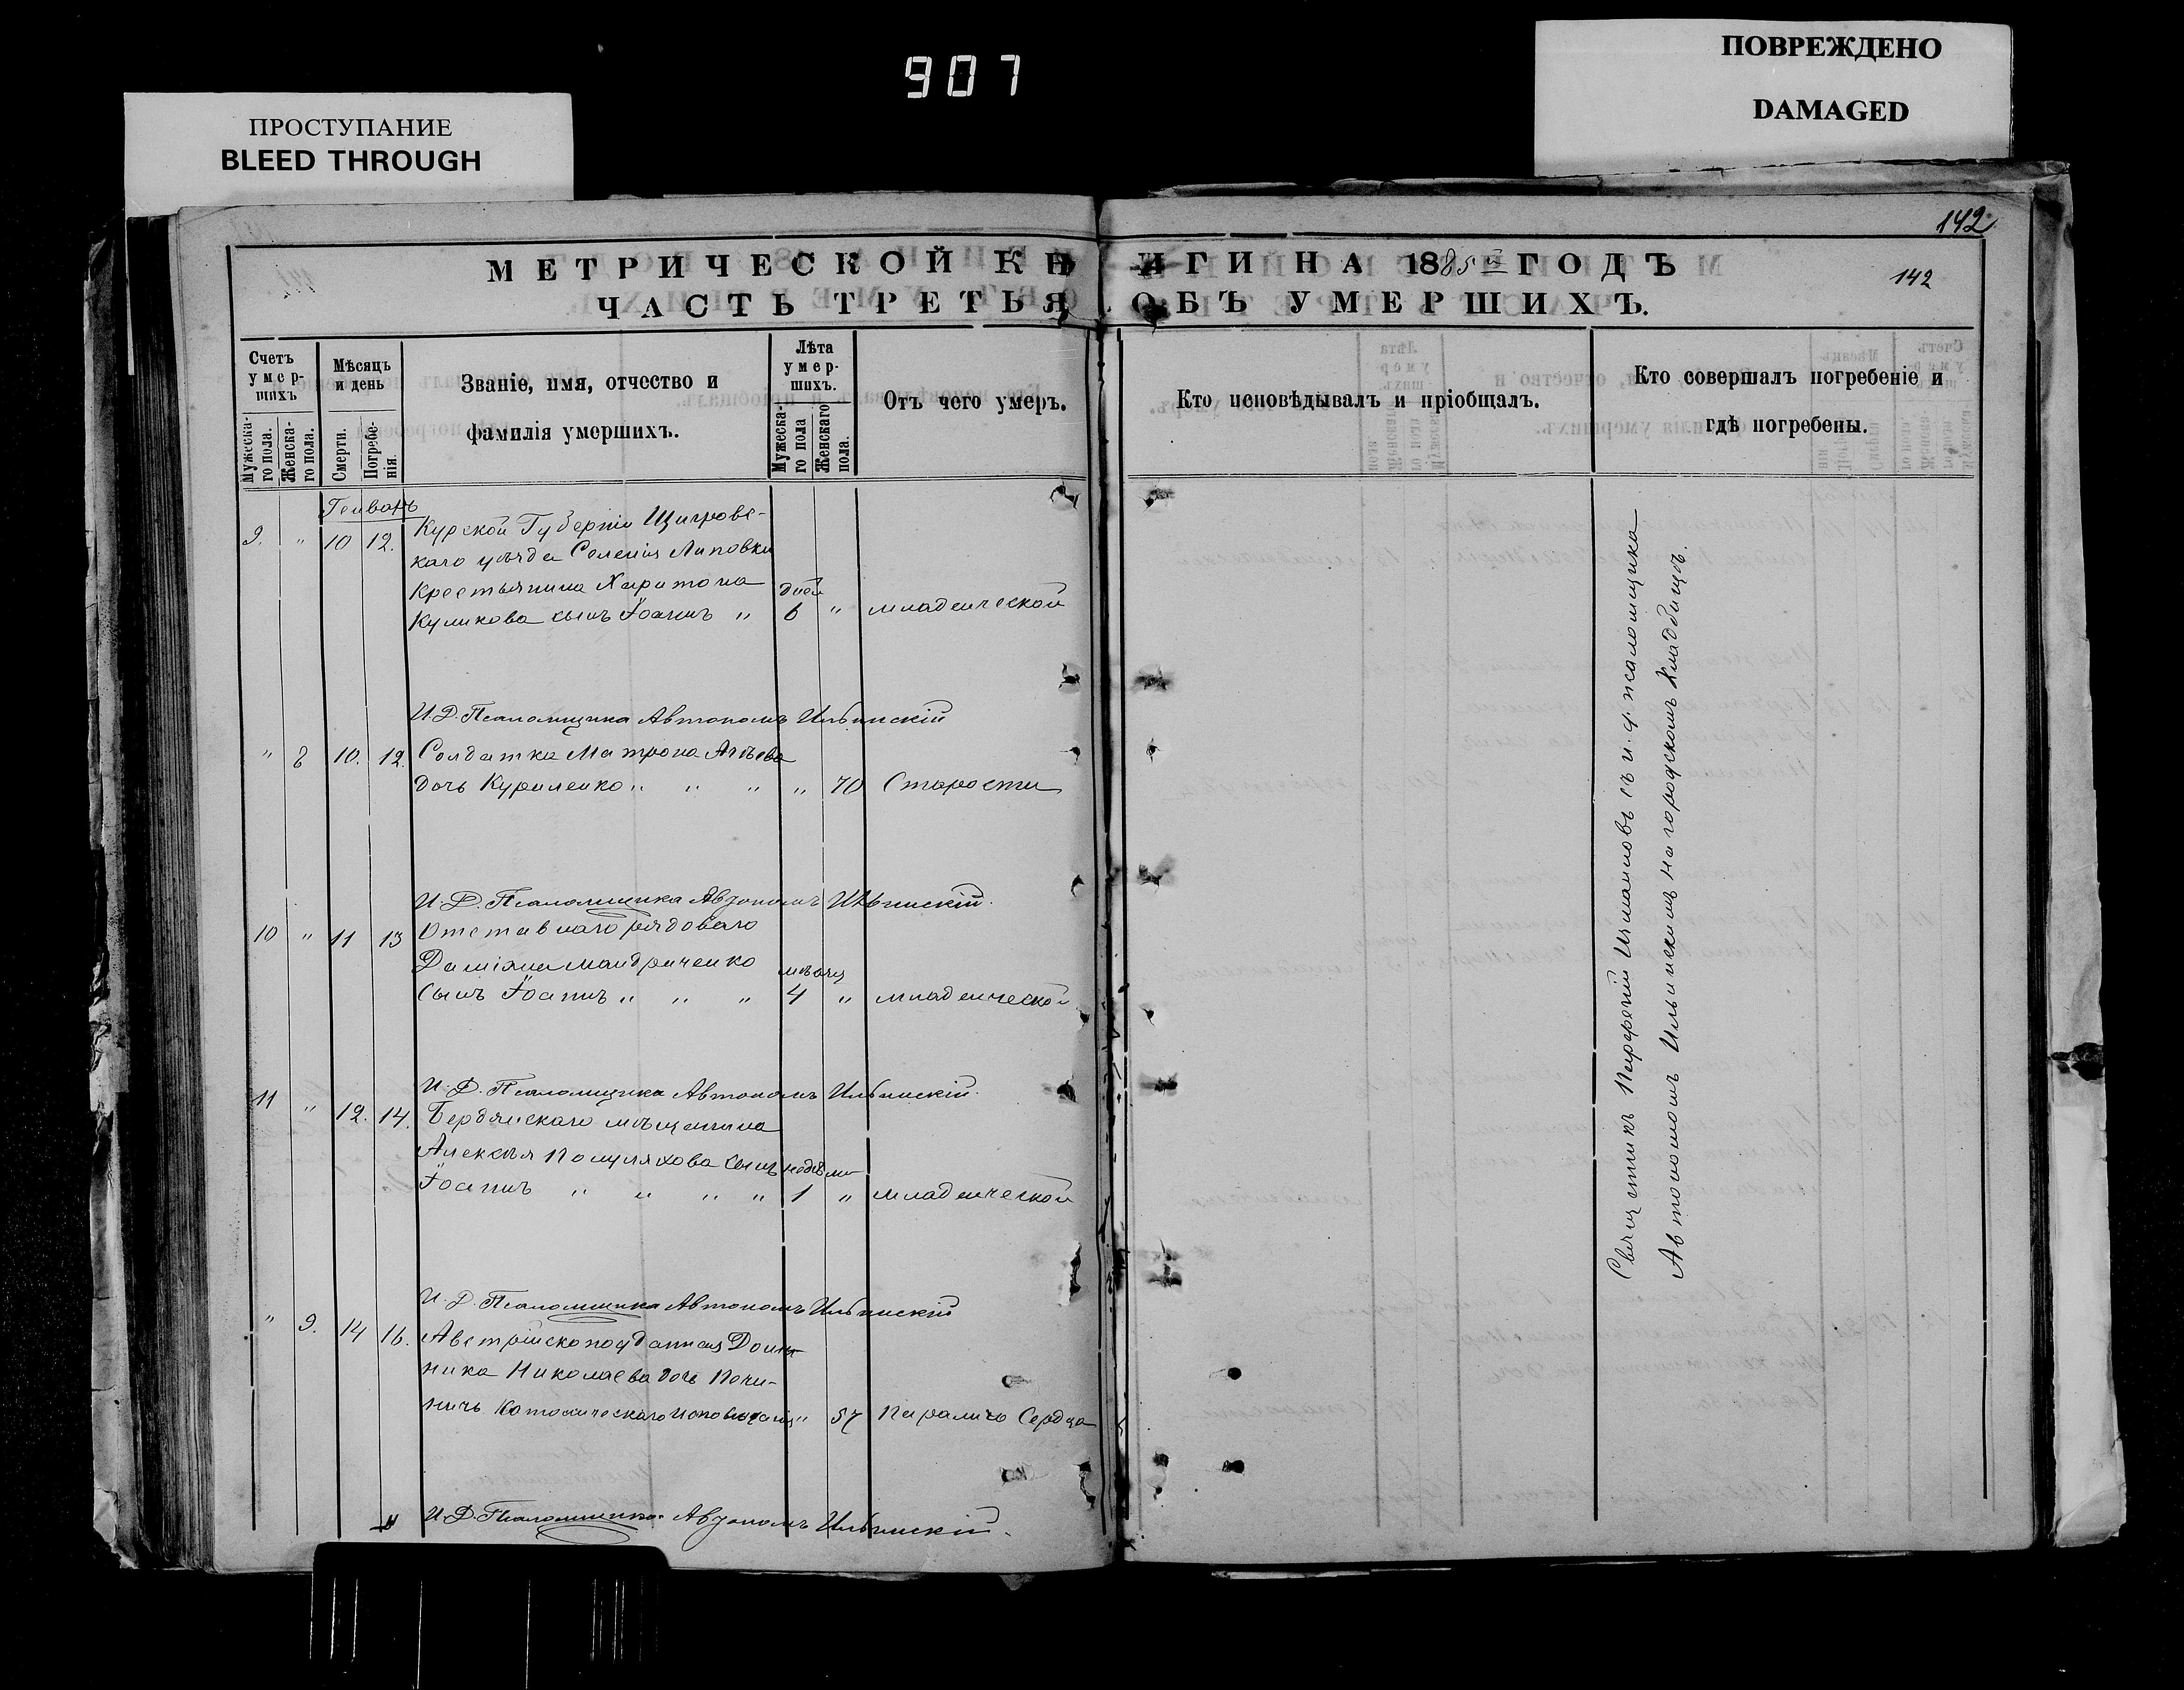 907
ПРОСТУПАНИЕ
BLEED THROUGH
ПОВРЕЖДЕНО
DAMAGED
142
МЕТРИЧЕСКОЙ КНИГИ НА 1885й ГОДЪ
142
ЧАСТЬ ТРЕТЬЯ, ОБЪ УМЕРШИХЪ.
Счетъ умершихъ
Мужеска-го пола.
Женска-го пола.
Мѣсяцъ и день
Смерти.
Погребе-нія.
Званіе, имя, отчество и
фамилія умершихъ.
Лѣта умер-шихъ.
Мужеска-го пола
Женскаго пола.
Отъ чего умеръ.
Кто исповѣдывалъ и пріобщалъ.
Кто совершалъ погребеніе и
гдѣ погребены.
Генварь
9. " 10 12. Курской Губерніи Щигровс-
каго уѣзда Селенія Липовки
Крестьянина Харитона
Куликова сынъ Іоаннъ " дней 6 " младенческой
И.Д. Псаломщика Автономъ Ильинскій
" 8 10. 12. Солдатка Матрона
дочь Куриленко " " " " 70 Старости
И.Д. Псаломщика Автономъ Ильинскій.
10 " 11 13 Отставнаго рядоваго
Даміяна Мандриченко
Сынъ Іоаннъ " " " мѣсяц 4 " младенческой
И.Д. Псаломщика Автономъ Ильинскій.
11 " 12. 14. Бердянскаго мѣщанина
Алексѣя Полуляхова сынъ
Іоаннъ " " " " недѣли 1 " младенческой
И.Д. Псаломщика Автономъ Ильинскій
" 9. 14 16. Австрійскоподданная Доми-
ника Николаева дочь
Католическаго исповѣданія " 57 Параличъ Сердца
И.Д. Псаломщика Автономъ Ильинскій.
Священникъ съ и. д. псаломщика
Автономомъ Ильинскимъ на городскомъ Кладбищѣ.